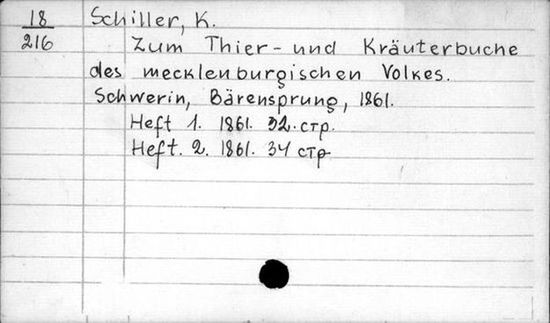 18
216
Schiller, K.
Zum Thier- und Kräuterbuche
des mecklenburgischen Volkes.
Schwerin, Bärensprung, 1861.
Heft 1. 1861. 32. стр.
Heft. 2. 1861. 34 стр